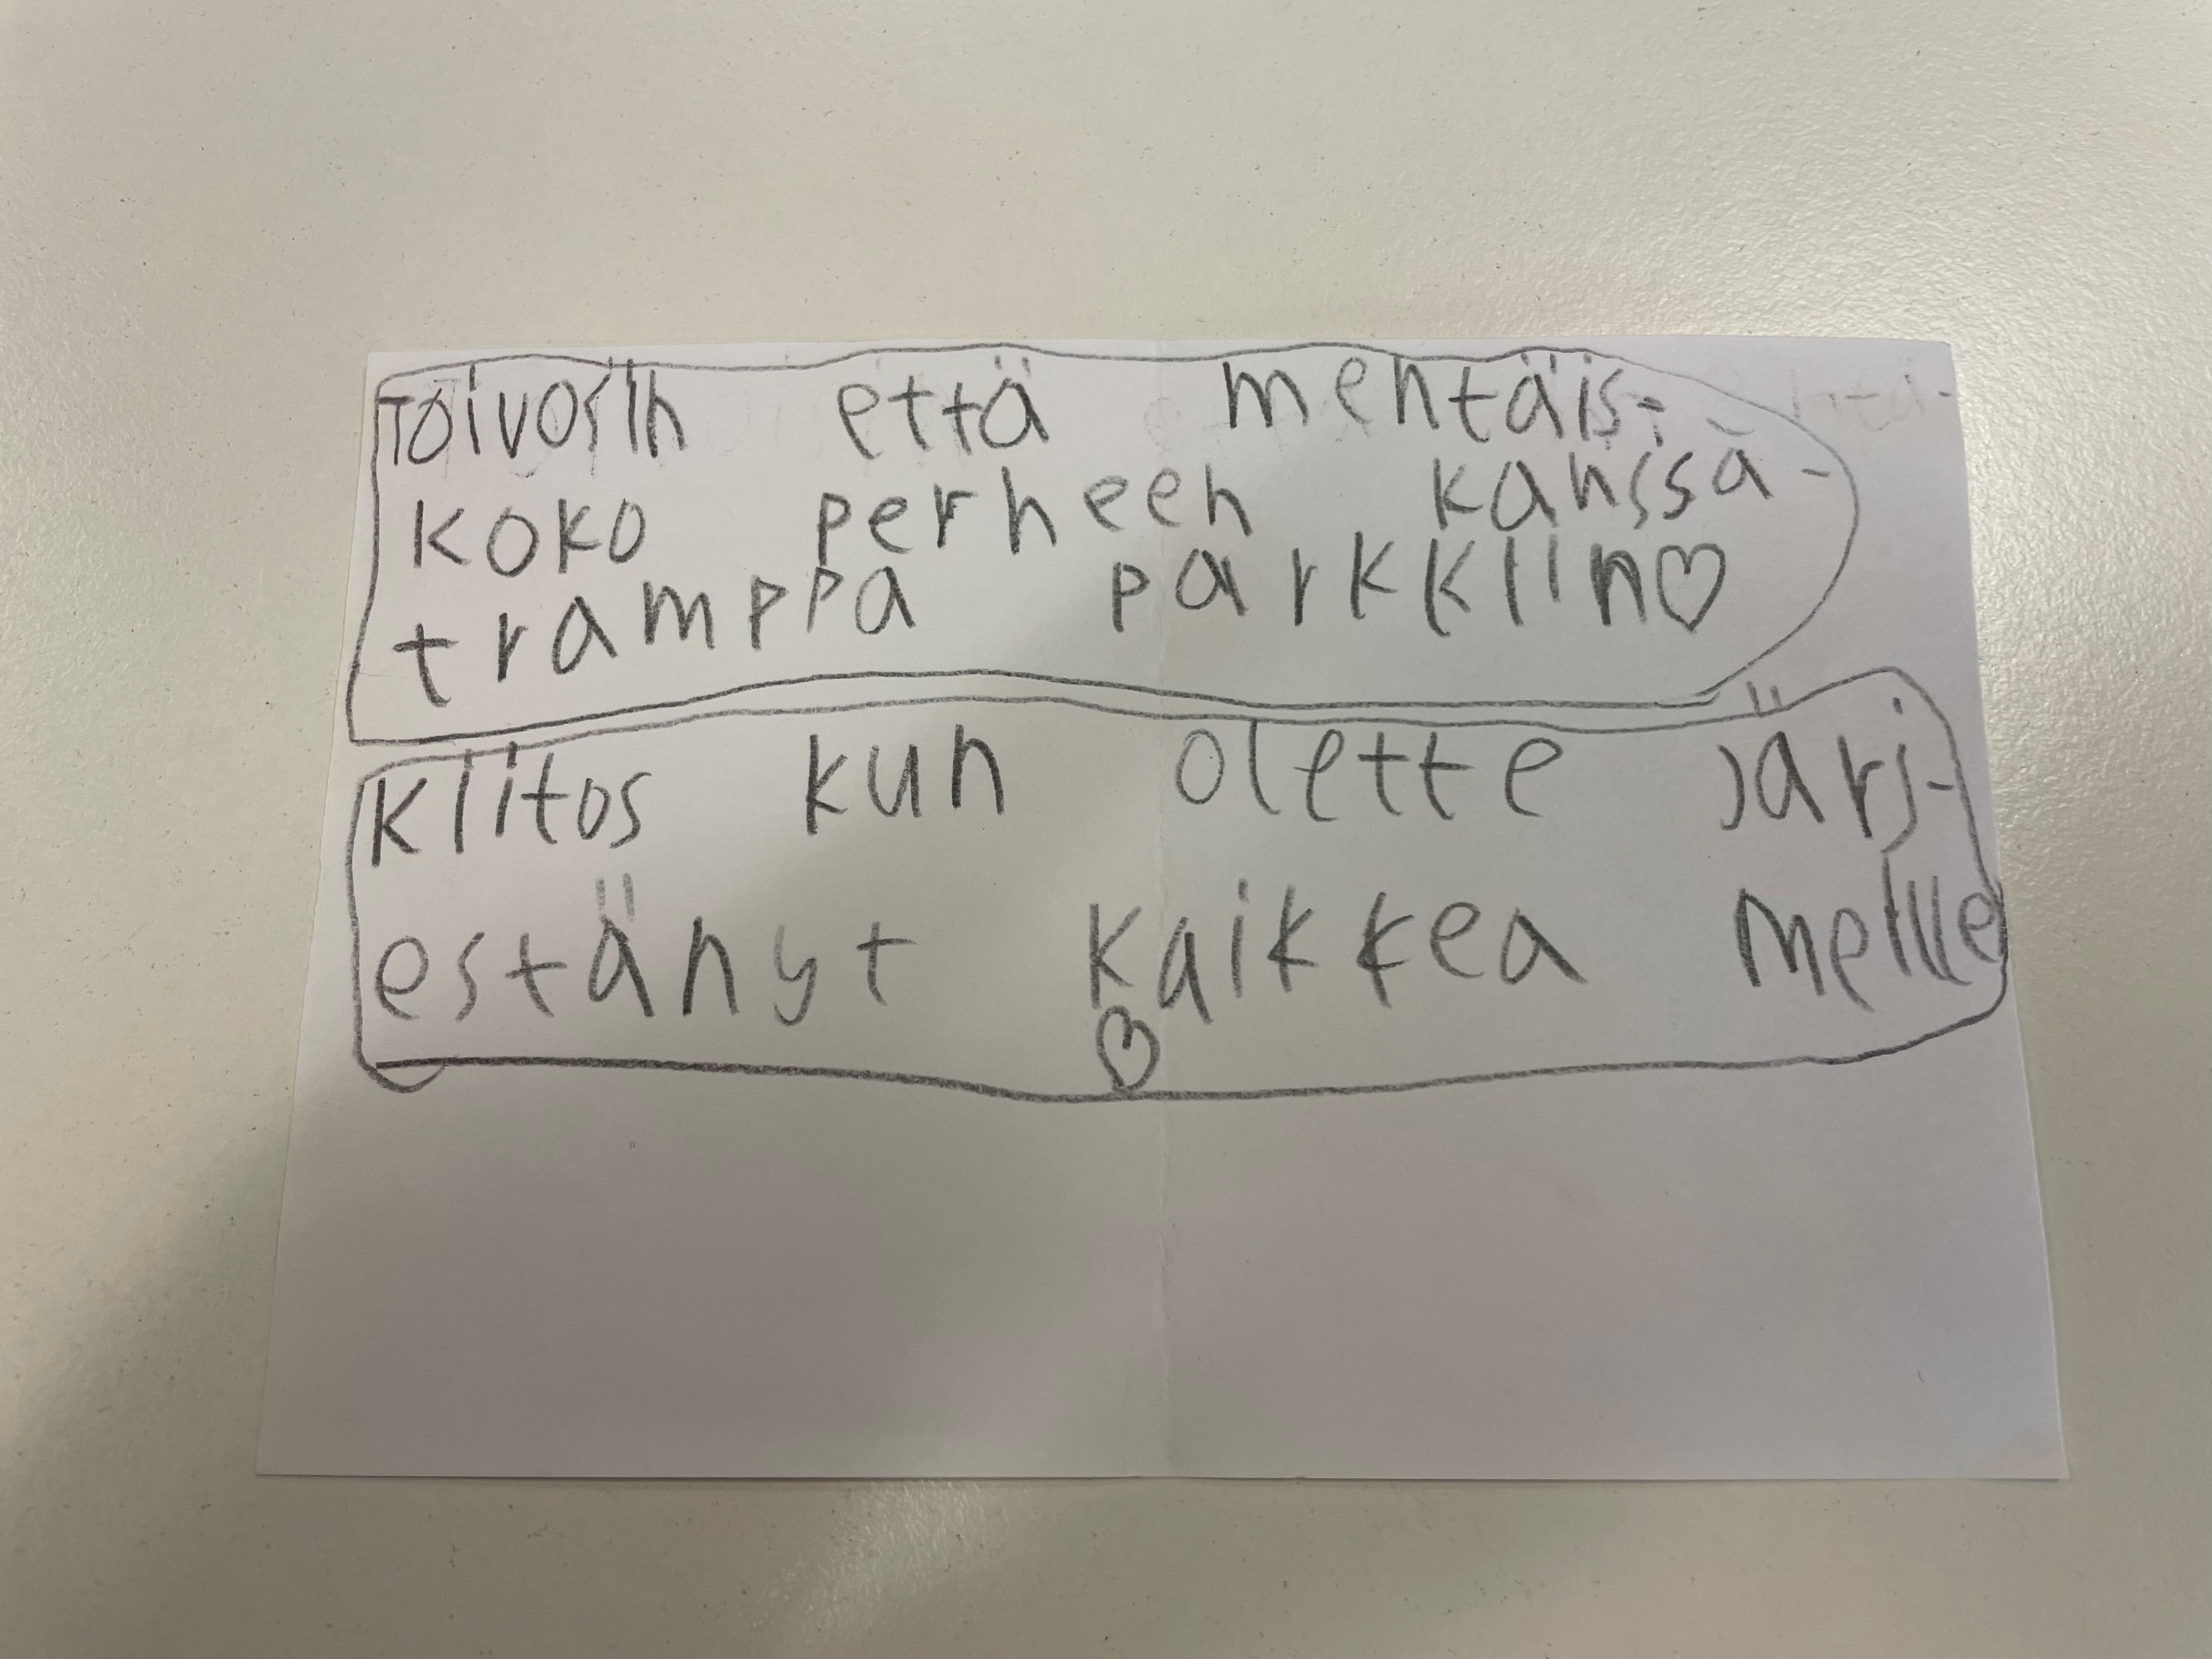 Toivosin että mentäis-
koko perheen kanssa-
tramppa parkkiin♡
kiitos kun olette järj-
estänyt kaikkea meille
♡